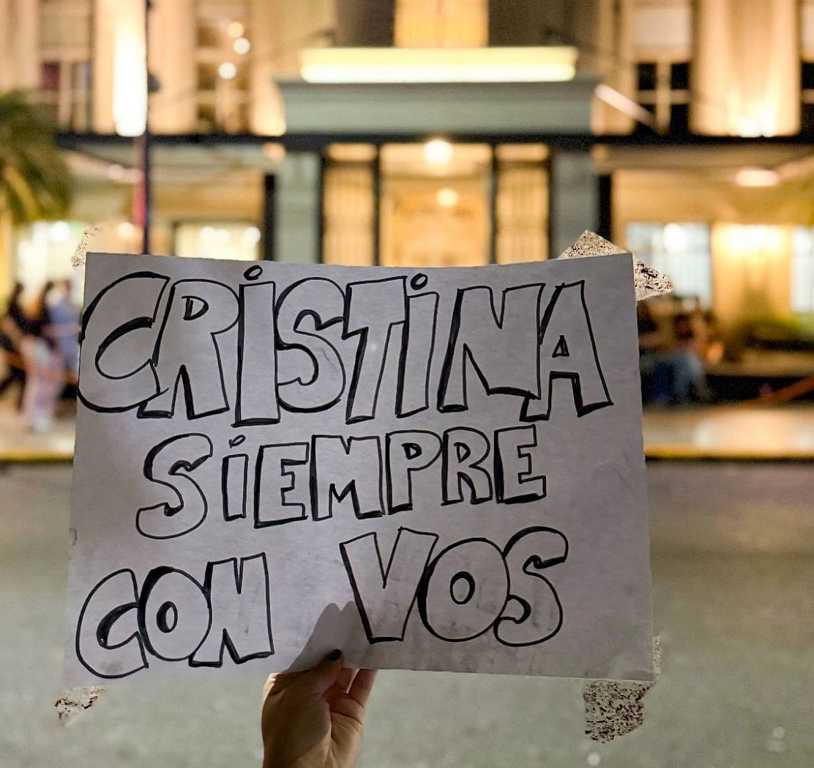 CRiSTiNA
SiEMPRE
CON VOS